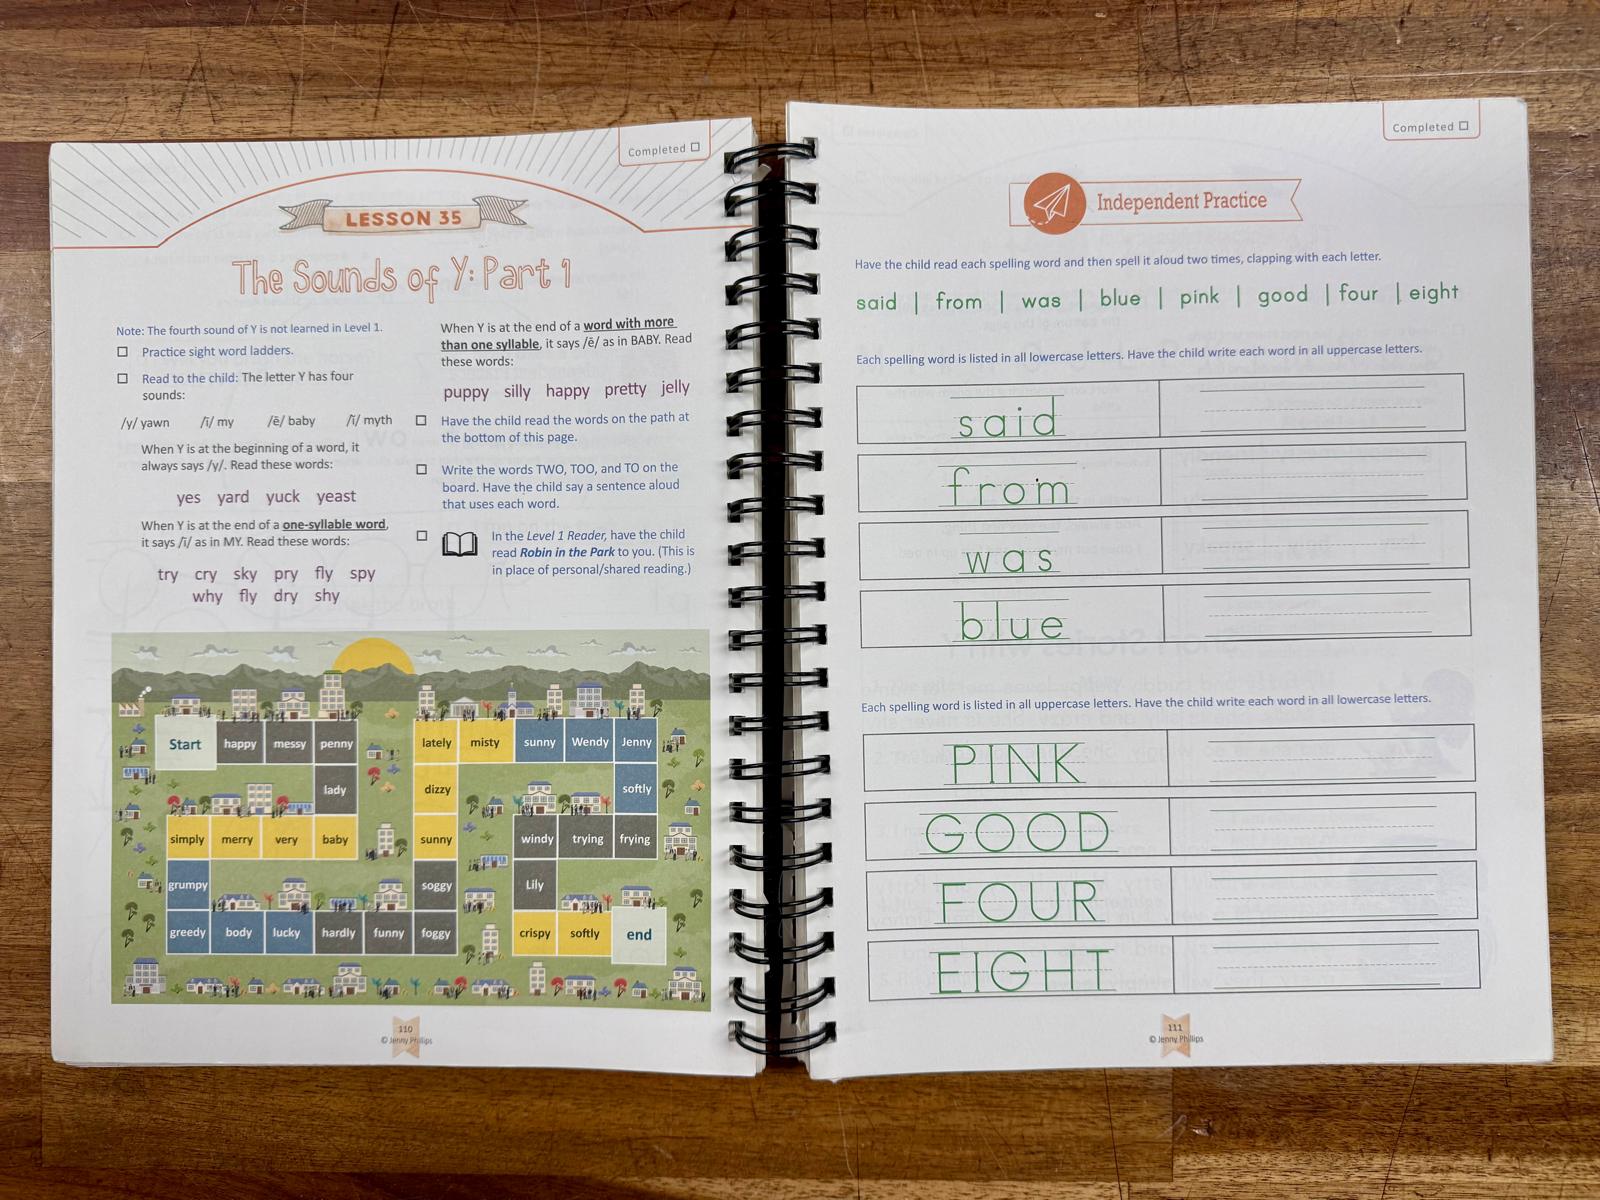 Completed
LESSON 35
The Sounds of Y: Part 1
Note: The fourth sound of Y is not learned in Level 1.
Practice sight word ladders.
Read to the child: The letter Y has four
sounds:
/y/ yawn /ī/ my /ē/ baby /ĭ/ myth
When Y is at the beginning of a word, it
always says /y/. Read these words:
yes yard yuck yeast
When Y is at the end of a one-syllable word,
it says /ī/ as in MY. Read these words:
try cry sky pry fly spy
why fly dry shy
When Y is at the end of a word with more
than one syllable, it says /ē/ as in BABY. Read
these words:
puppy silly happy pretty jelly
Have the child read the words on the path at
the bottom of this page.
Write the words TWO, TOO, and TO on the
board. Have the child say a sentence aloud
that uses each word.
In the Level 1 Reader, have the child
read Robin in the Park to you. (This is
in place of personal/shared reading.)
Start happy messy penny lately misty sunny Wendy Jenny
lady dizzy softly
simply merry very baby sunny windy trying frying
grumpy soggy Lily
greedy body lucky hardly funny foggy crispy softly end
110
© Jenny Phillips
Completed
Independent Practice
Have the child read each spelling word and then spell it aloud two times, clapping with each letter.
said | from | was | blue | pink | good | four | eight
Each spelling word is listed in all lowercase letters. Have the child write each word in all uppercase letters.
said
from
was
blue
Each spelling word is listed in all uppercase letters. Have the child write each word in all lowercase letters.
PINK
GOOD
FOUR
EIGHT
111
© Jenny Phillips